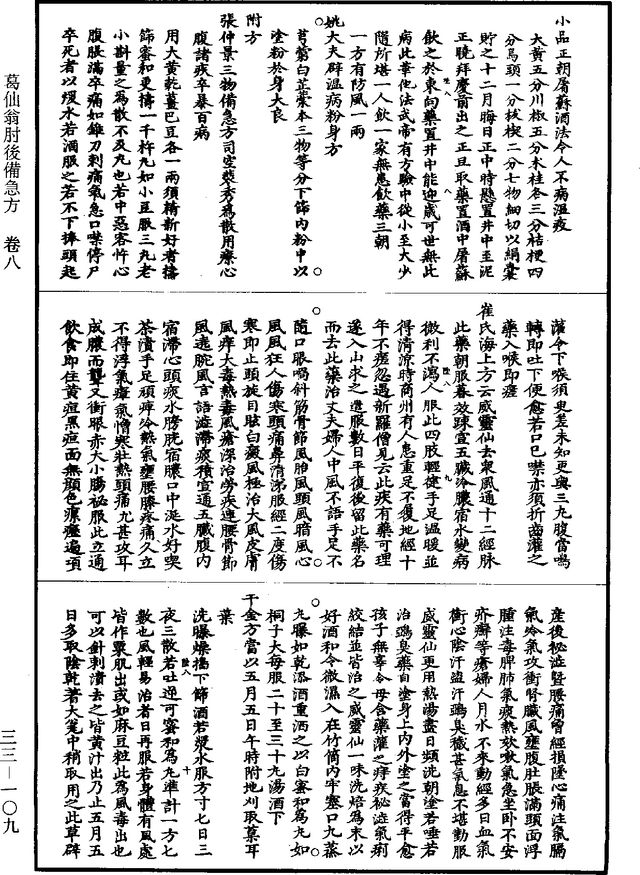 小品正朝屠蘇酒法令人不病溫疫
大黃五分川椒五分朮桂各三分桔梗四
分烏頭一分菝楔二分七物細切以絹囊
貯之十二月晦日正中時懸置井中至泥
正曉拜慶前出之正旦取藥置酒中屠蘇
飲之於東向藥置井中能迎歲可世無此
病此華佗法武帝有方驗中從小至大少
隨所堪一人飲一家無患飲藥三朝
一方有防風一兩
姚大夫辟溫病粉身方
芎藭白芷藁本三物等分下篩內粉中以
塗粉於身大良
附方
張仲景三物備急方司空裴秀為散用療心
腹諸疾卒暴百病
用大黃乾薑巴豆各一兩須精新好者擣
篩蜜和更擣一千杵丸如小豆服三丸老
小斟量之為散不及丸也若中惡客忤心
腹脹滿卒痛如錐刀刺痛氣急口噤停尸
卒死者以煖水若酒服之若不下捧頭起
灌令下喉須臾差未知更與三丸腹當鳴
轉即吐下便愈若口已噤亦須折齒灌之
藥入喉即瘥
崔氏海上方云威靈仙去衆風通十二經脉
此藥朝服暮效疎宣五臟冷膿宿水變病
微利不瀉人服此四肢輕健手足溫暖並
得清涼時商州有人患重足不履地經十
年不瘥忽遇新羅僧見云此疾有藥可理
遂入山求之遣服數日平復後留此藥名
而去此藥治丈夫婦人中風不語手足不
隨口眼喎斜筋骨節風胎風頭風暗風心
風風狂人傷寒頭痛鼻清涕服經二度傷
寒即止頭旋目眩白癜風極治大風皮膚
風痒大毒熱毒風瘡深治勞疾連腰骨節
風遶腕風言語澁滯痰積宣通五臟腹內
宿滯心頭痰水膀胱宿膿口中涎水好喫
茶漬手足頑痺冷熱氣壅腰膝疼痛久立
不得浮氣瘴氣憎寒壯熱頭痛尤甚攻耳
成膿而聾又衝眼赤大小腸祕服此立通
飲食即住黃疸黑疸面無顏色瘰癧遍項
産後祕澁暨腰痛曾經損墜心痛注氣膈
氣冷氣攻衝腎臟風壅腹肚脹滿頭面浮
腫注毒脾肺氣痰熱欬嗽氣急坐卧不安
疥癬等瘡婦人月水不來動經多日血氣
衝心陰汗盜汗鴉臭穢甚氣息不堪勤服
威靈仙更用熱湯盡日頻洗朝塗若唾若
治鴉臭藥自塗身上內外塗之當得平愈
孩子無辜令母含藥灌之痔疾祕澁氣痢
絞結並皆治之威靈仙一味洗焙為末以
好酒和令微濕入在竹筒內牢塞口九蒸
九曝如乾添酒重洒之以白蜜和為丸如
桐子大每服二十至三十九湯酒下
千金方當以五月五日午時附地刈取葈耳
葉
洗曝燥擣下篩酒若漿水服方寸七日三
夜三散若吐逆可蜜和為丸準計一方七
數也風輕易治者日再服若身體有風處
皆作粟肌出或如麻豆粒此為風毒出也
可以針刺潰去之皆黃汁出乃止五月五
日多取陰乾著大瓮中稍取用之此草辟
葛仙翁肘後備急方　卷八
三三—一〇九